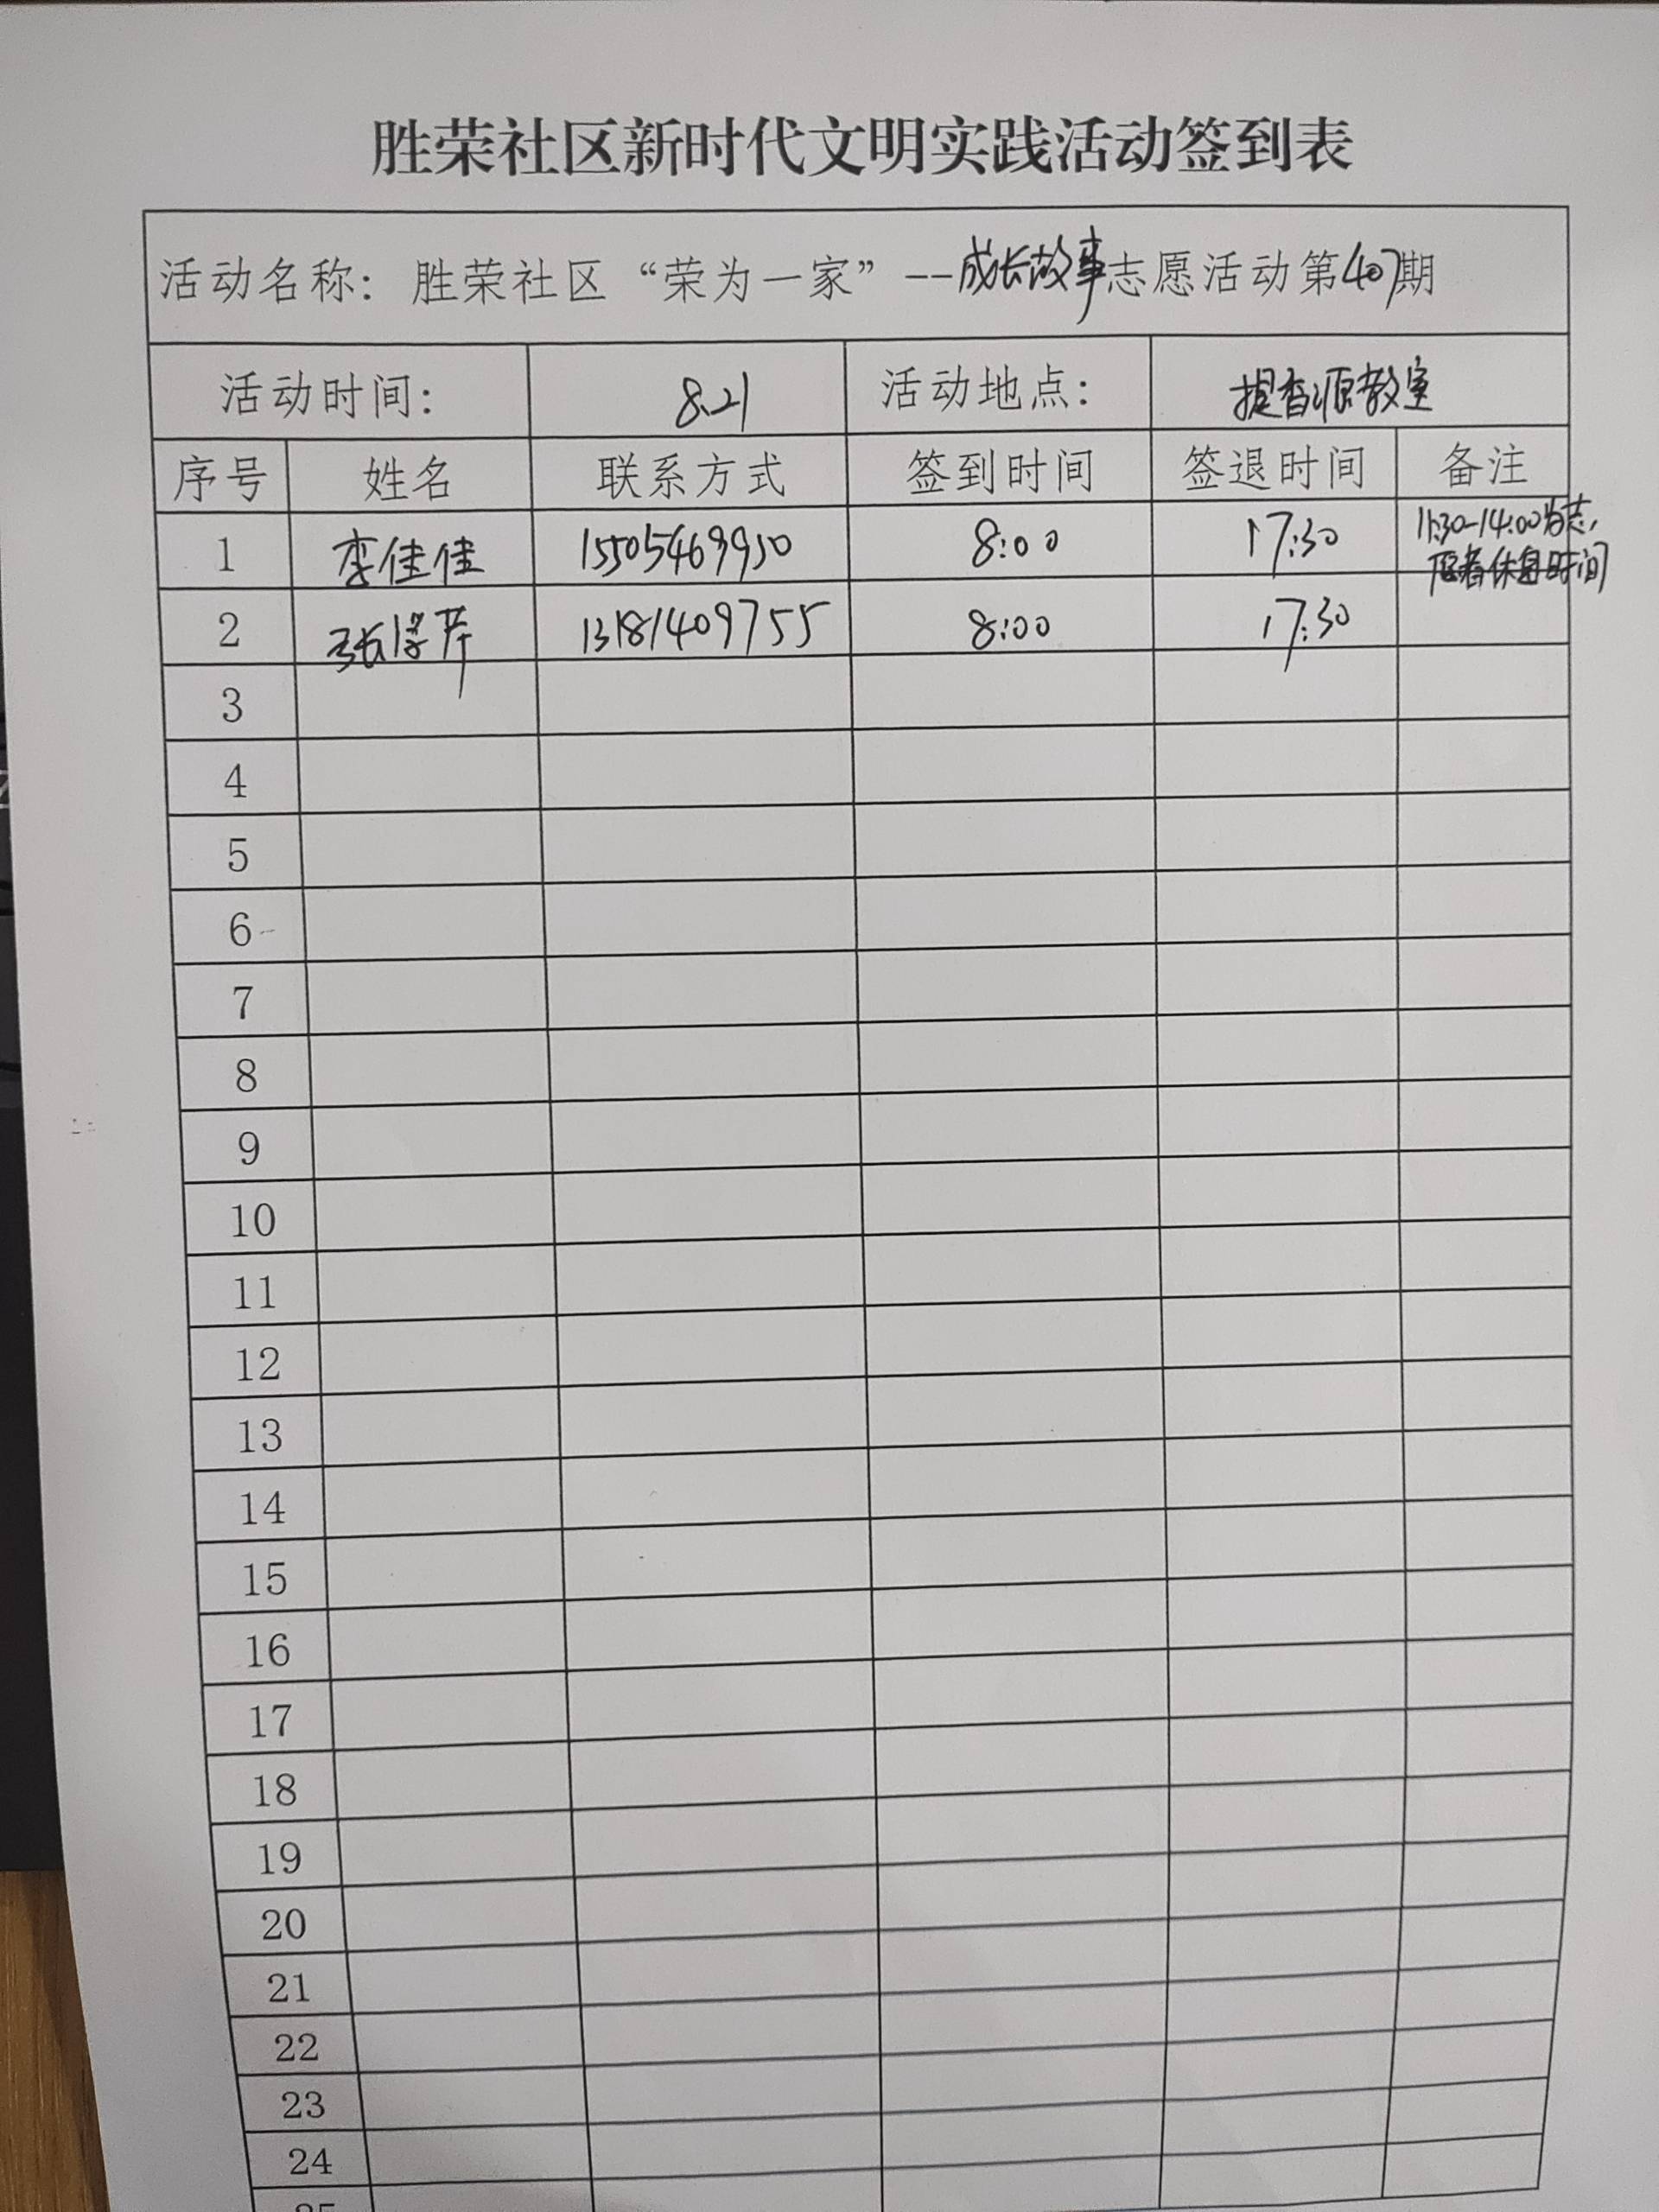 胜荣社区新时代文明实践活动签到表
活动名称：胜荣社区“荣为一家”--成长故事志愿活动第407期
活动时间： 8.21 活动地点： 提香源教室
序号 姓名 联系方式 签到时间 签退时间 备注
1 李佳佳 15505469950 8:00 17:30 11:30-14:00为志
愿者休息时间
2 张 13181409755 8:00 17:30
3
4
5
6
7
8
9
10
11
12
13
14
15
16
17
18
19
20
21
22
23
24
25